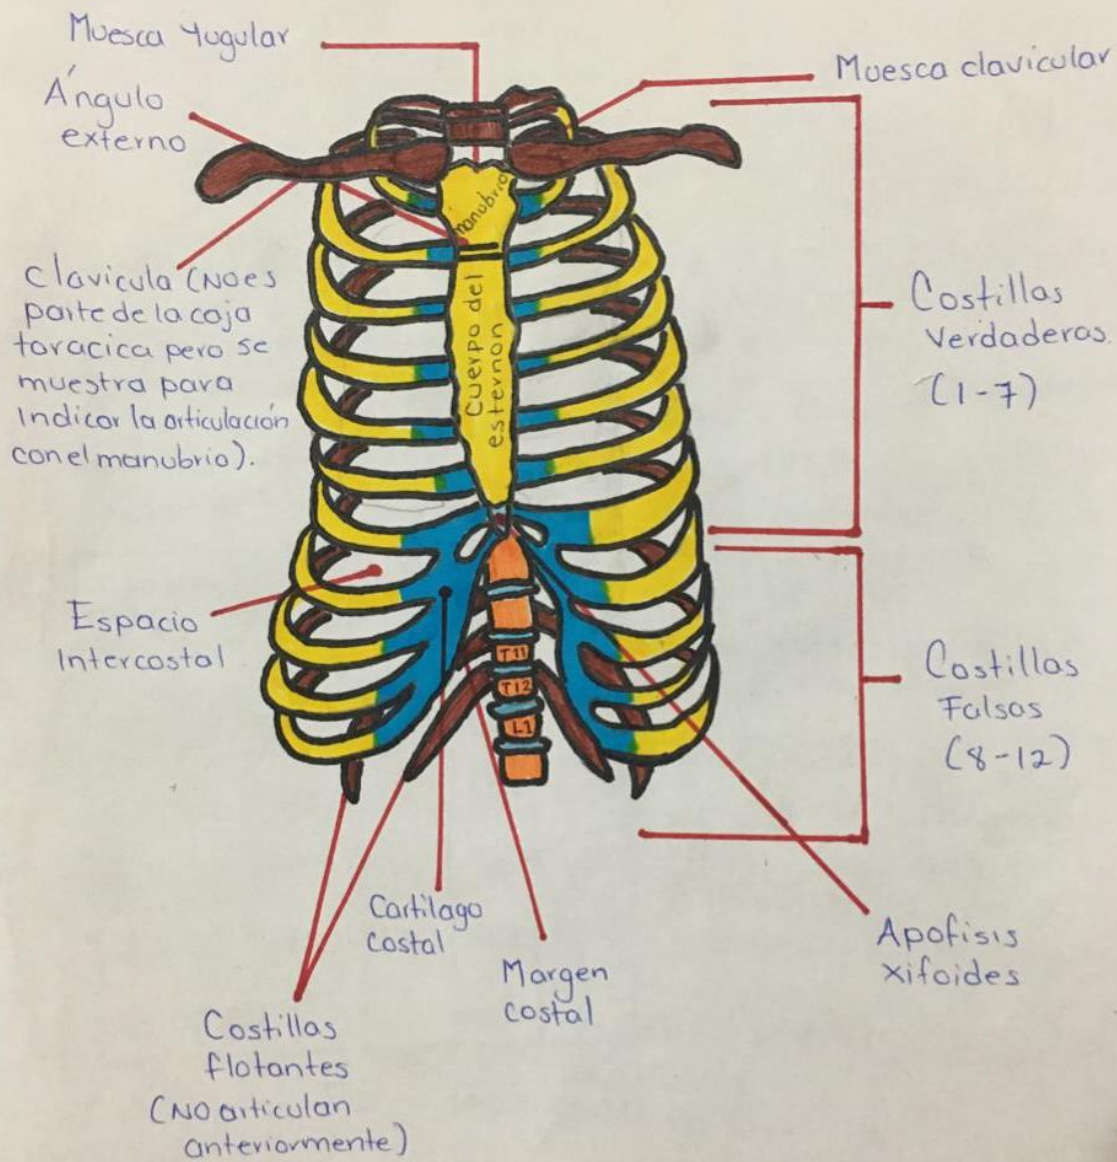 Muesca Yugular
Muesca clavicular
Ángulo
externo
manubrio
Clavicula (NO es
parte de la caja
toracica pero se
muestra para
Indicar la articulación
con el manubrio).
Cuerpo del
esternon
Costillas
Verdaderas.
(1-7)
Espacio
Intercostal
T11
T12
L1
Costillas
Falsas
(8-12)
Cartilago
costal
Margen
costal
Apofisis
xifoides
Costillas
flotantes
(NO articulan
anteriormente)